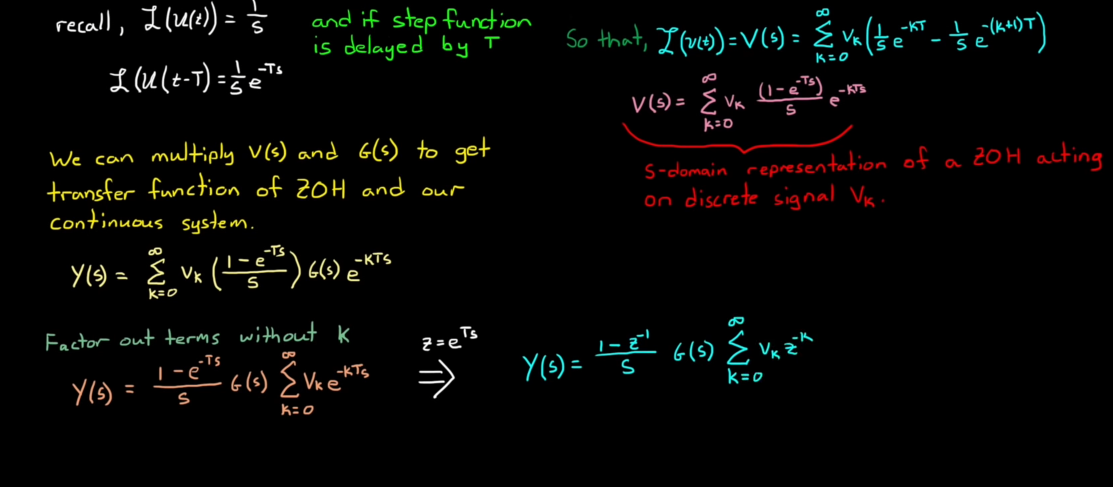 recall, ℒ(u(t)) = 1/s
and if step function
is delayed by T
ℒ(u(t-T) = 1/s e^{-Ts}
So that, ℒ(v(t)) = V(s) = ∑_{k=0}^{∞} v_k (1/s e^{-kT} - 1/s e^{-(k+1)T})
V(s) = ∑_{k=0}^{∞} v_k (1-e^{-Ts})/s e^{-kTs}
s-domain representation of a ZOH acting
on discrete signal v_k.
We can multiply V(s) and G(s) to get
transfer function of ZOH and our
continuous system.
Y(s) = ∑_{k=0}^{∞} v_k ((1-e^{-Ts})/s) G(s) e^{-kTs}
Factor out terms without k
Y(s) = (1-e^{-Ts})/s G(s) ∑_{k=0}^{∞} v_k e^{-kTs}
z = e^{Ts}
⇒
Y(s) = (1-z^{-1})/s G(s) ∑_{k=0}^{∞} v_k z^{-k}